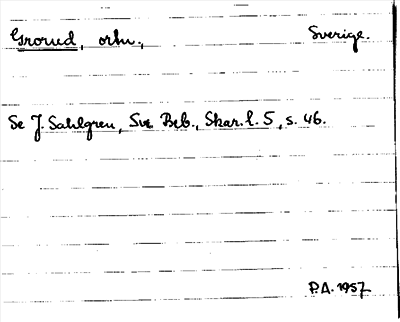 Grorud, ortn., Sverige.
Se J. Sahlgren, Sve. Beb., Skar. l. 5, s. 46.
P.A. 1957